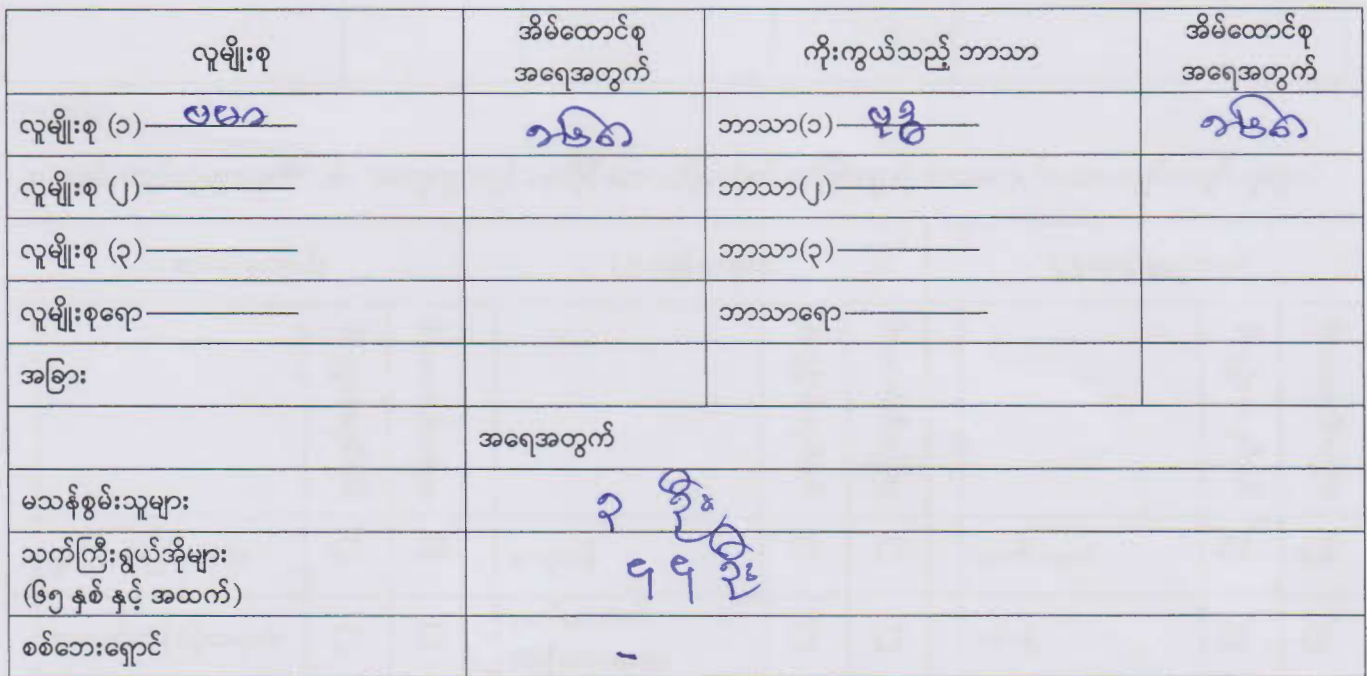 လူမျိုးစု အိမ်ထောင်စု အရေအတွက် ကိုးကွယ်သည့် ဘာသာ အိမ်ထောင်စု အရေအတွက်
လူမျိုးစု (၁) ဗမာ ဘာသာ(၁) ဗုဒ္ဓ
လူမျိုးစု (၂) ဘာသာ(၂)
လူမျိုးစု (၃) ဘာသာ(၃)
လူမျိုးစုရော ဘာသာရော
အခြား
အရေအတွက်
မသန်စွမ်းသူများ ၃ ဦး
သက်ကြီးရွယ်အိုများ
(၆၅ နှစ် နှင့် အထက်) ၅ ၅ ဦး
စစ်ဘေးရှောင် -